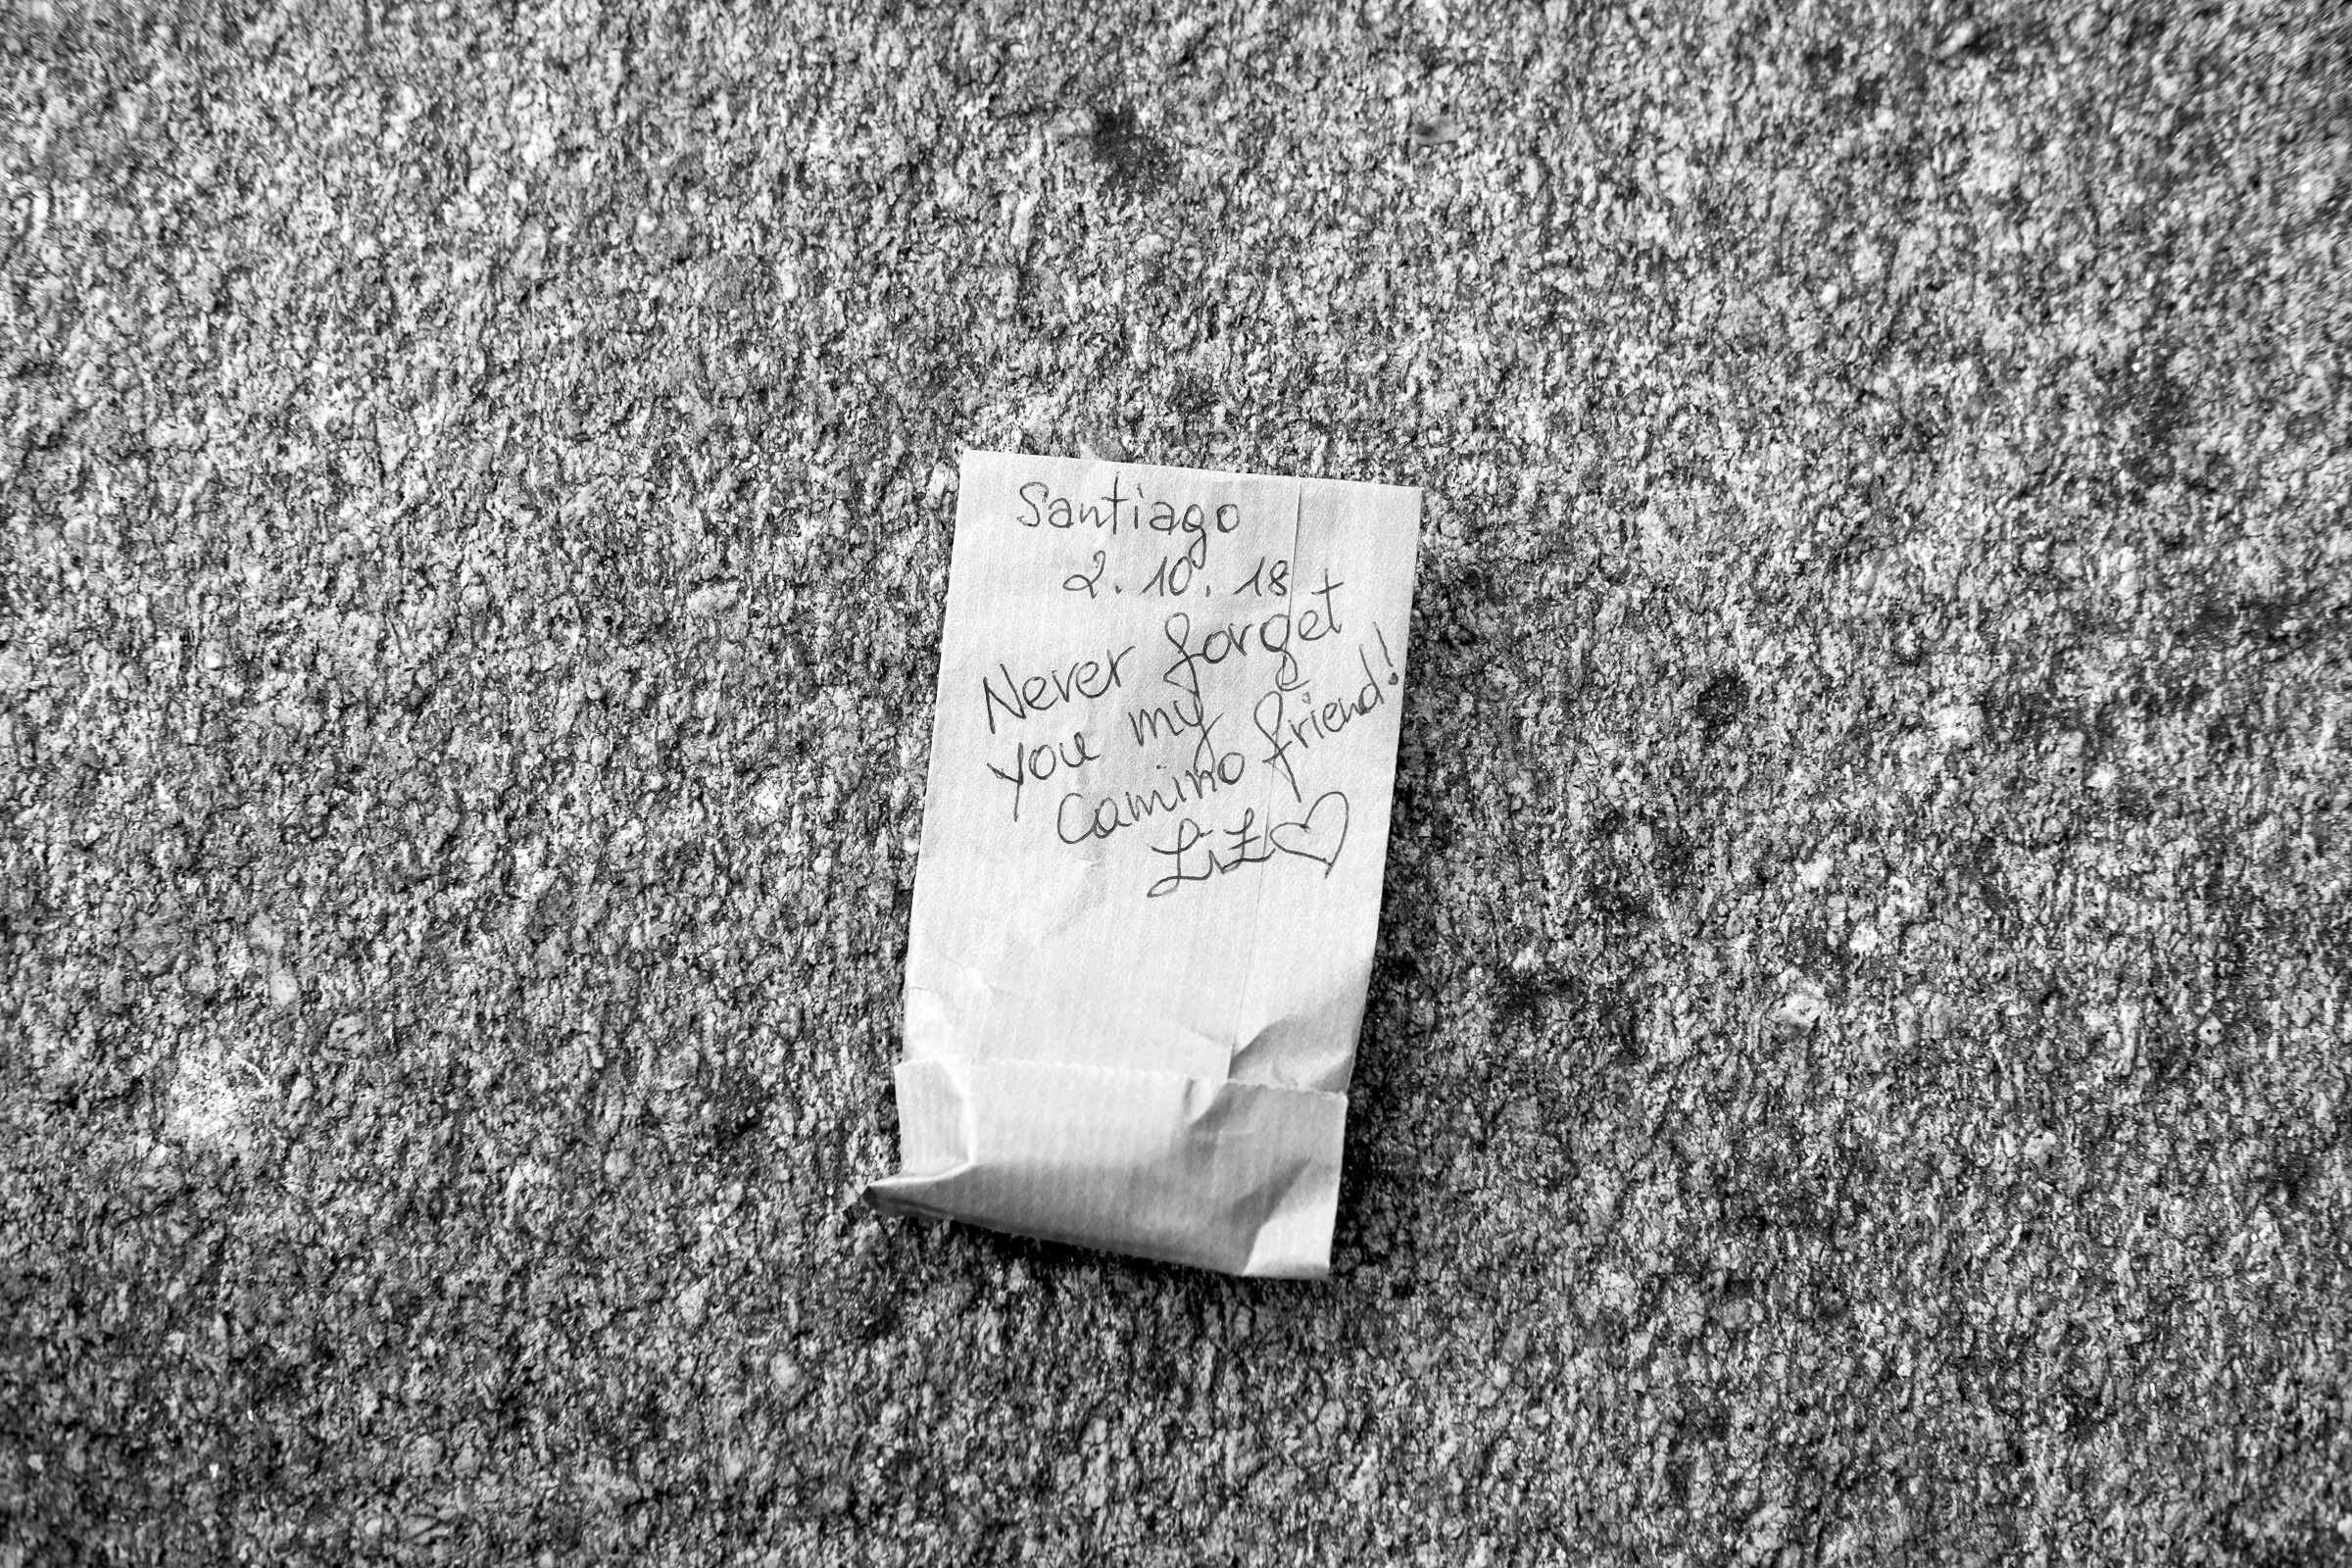 Santiago
2.10.18
Never forget
you my
Camino friend!
Liz